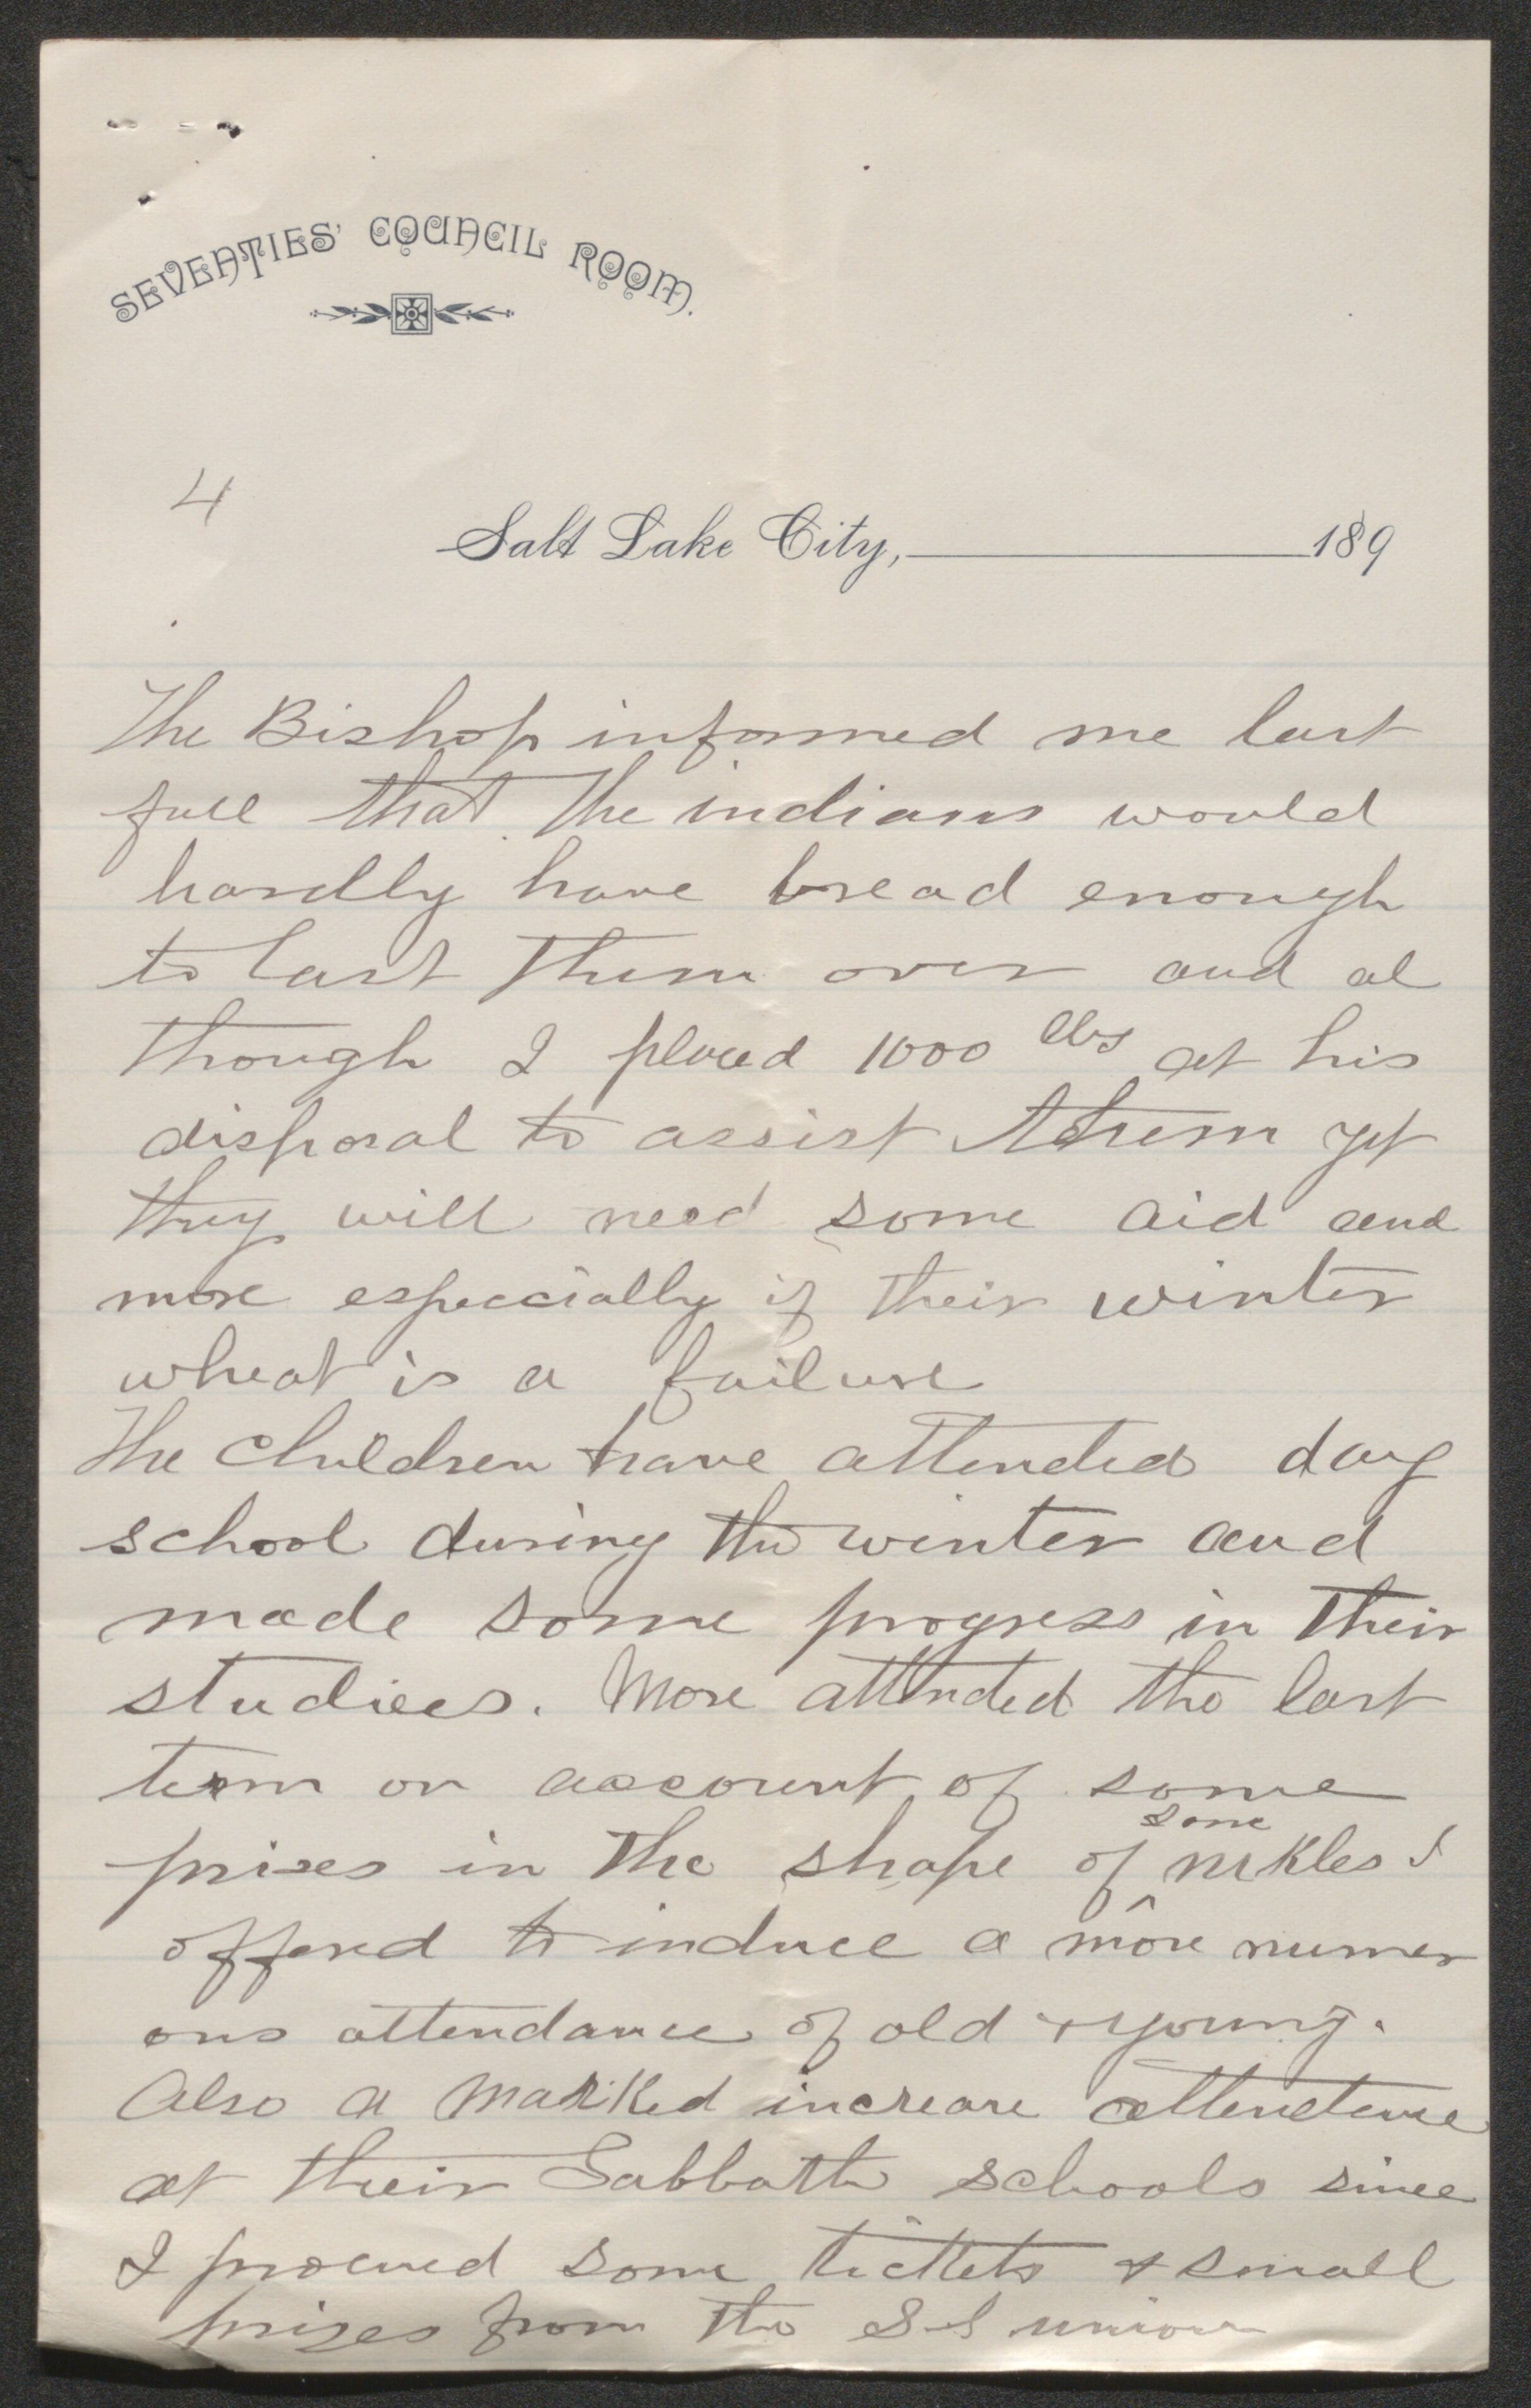 SEVENTIES' COUNCIL ROOM.
4
Salt Lake City, 189
The Bishop informed me last
fall that the indians would
hardly have bread enough
to last them over and al
though I placed 1000 lbs at his
disposal to assist them yet
they will need some aid and
more especially if their winter
wheat is a failure
The Children have attended day
school during the winter and
made some progress in their
studies. More attended the last
term on account of some
prizes in the shape of some nikles I
offered to induce a more numer
ous attendance of old & young.
Also a marked increase attendance
at their Sabbath schools since
I procured some tickets & small
prizes from the S S union